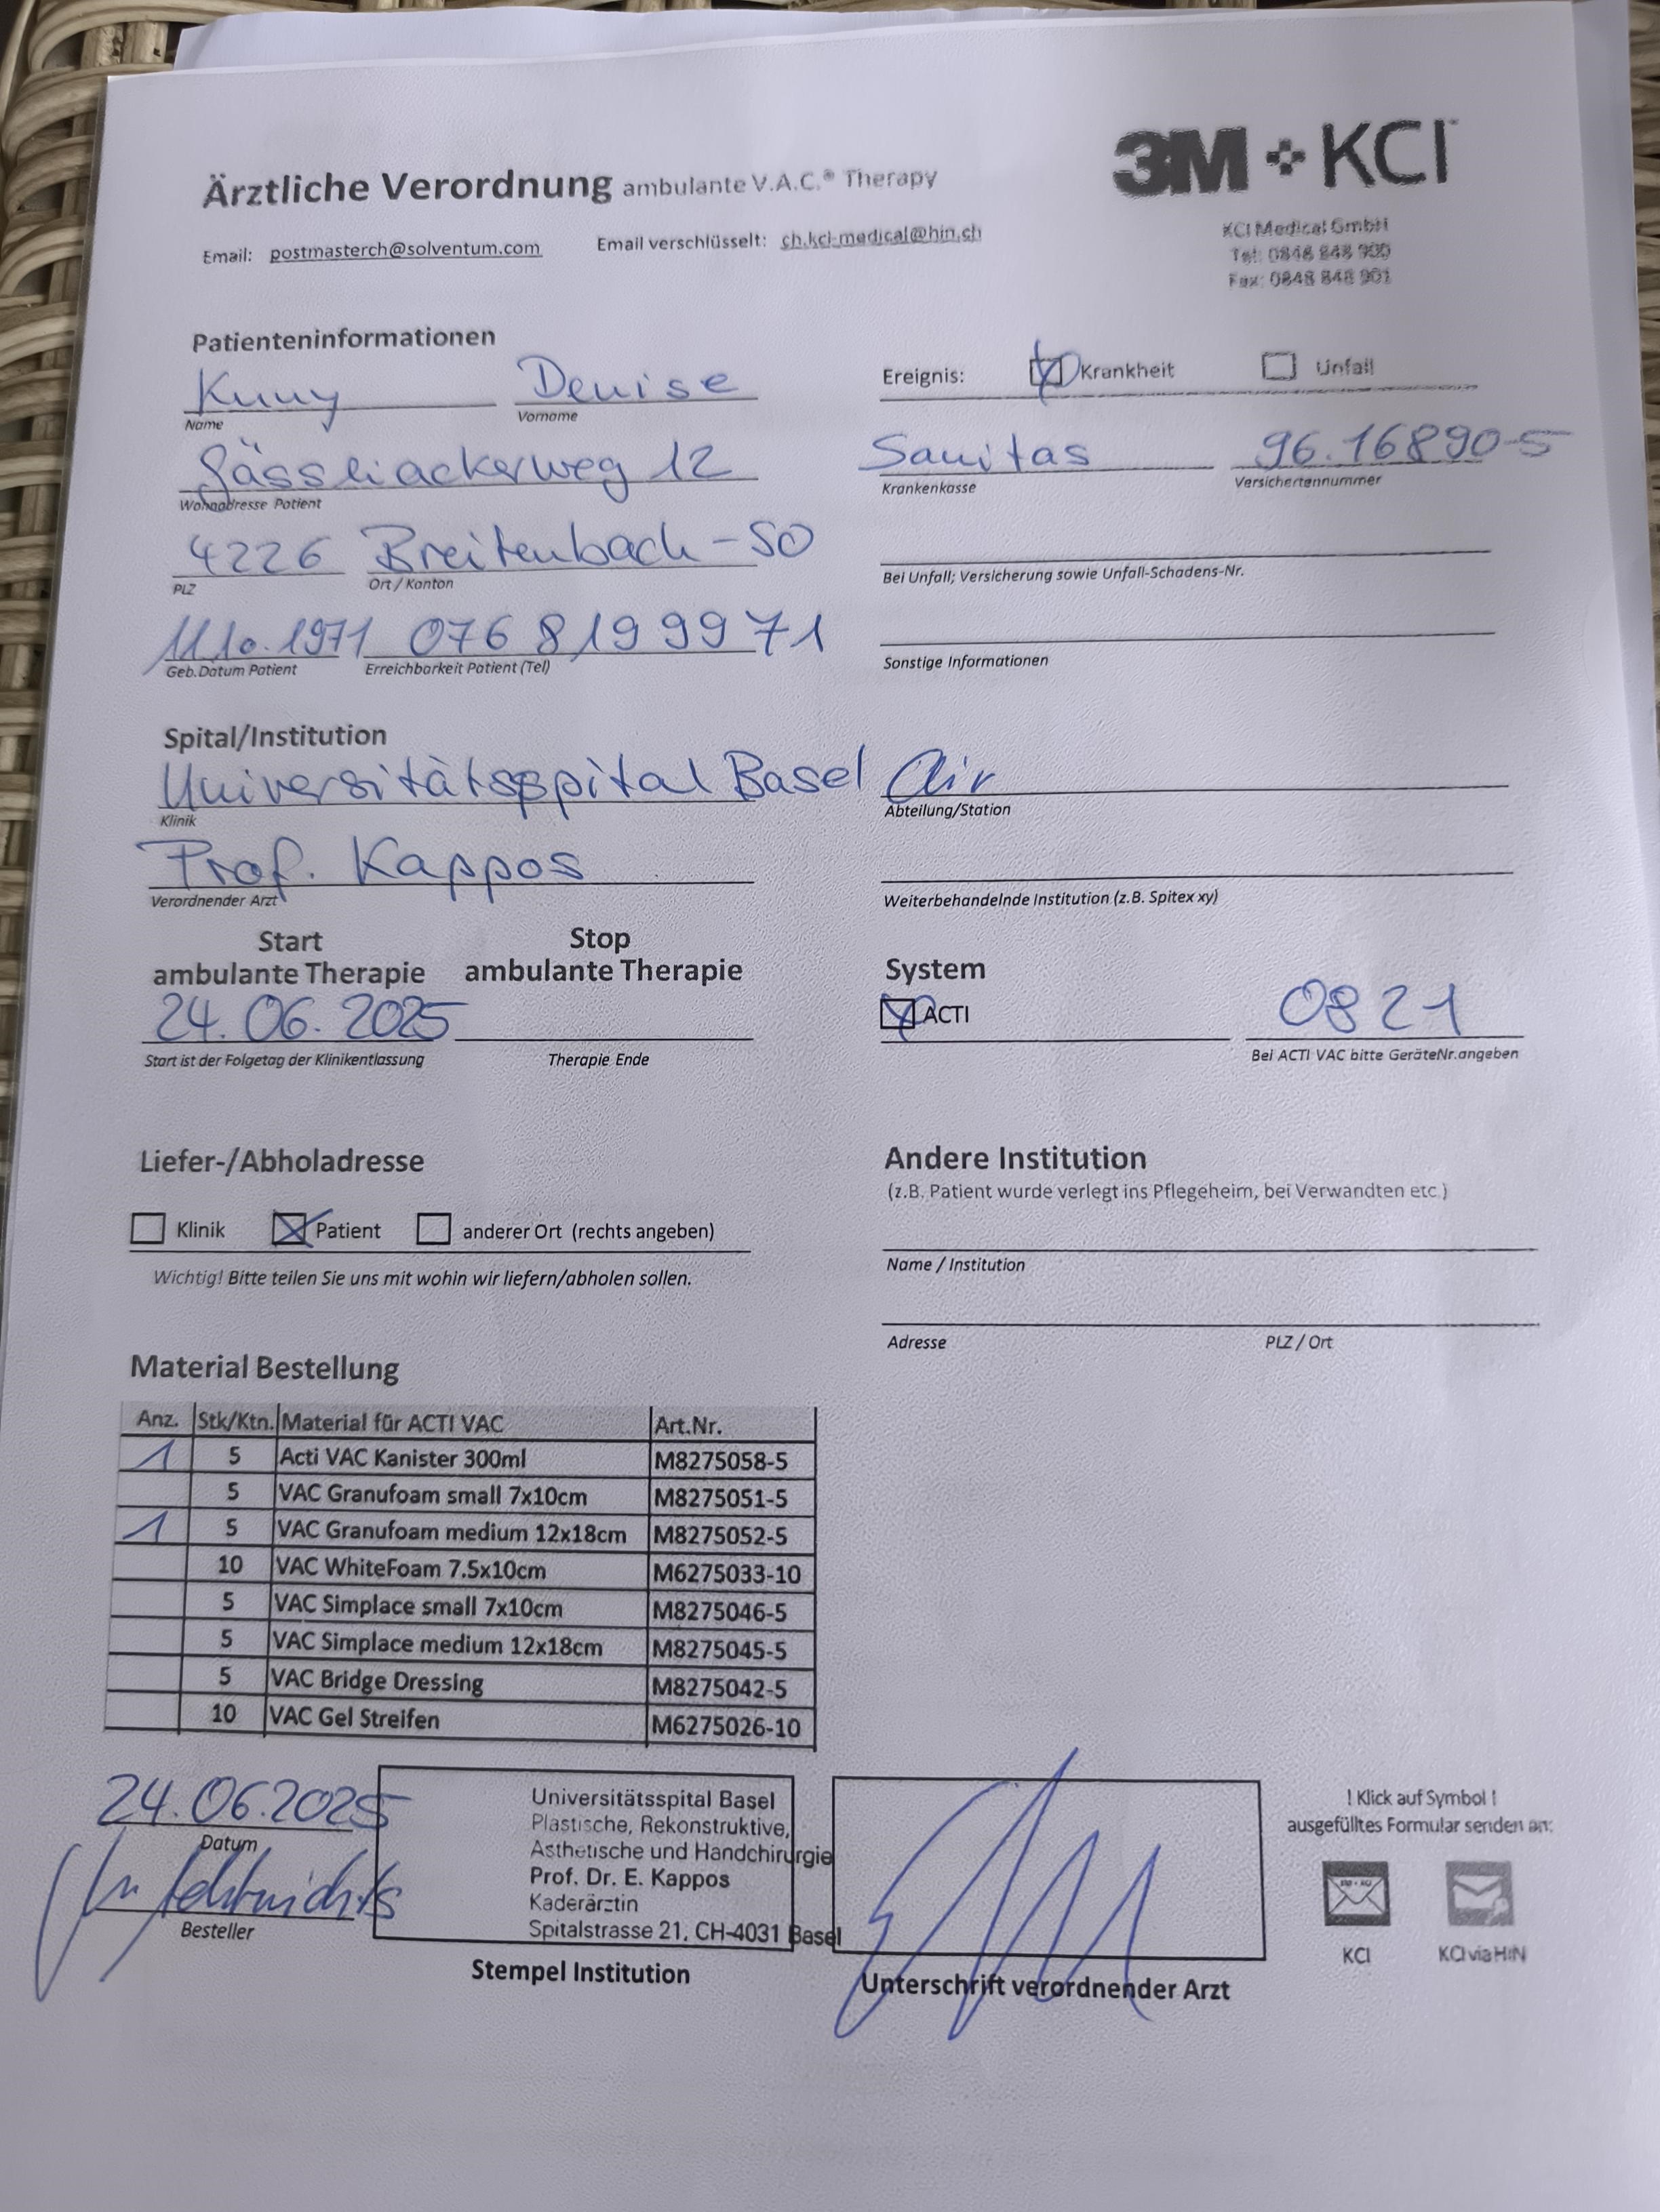 Ärztliche Verordnung ambulante V.A.C.® Therapy
3M KCI
Email: postmasterch@solventum.com Email verschlüsselt: ch.kci-medical@hin.ch
KCI Medical GmbH
Tel: 0848 848 900
Fax: 0848 848 901
Patienteninformationen
Kuny Denise
Name Vorname
Ereignis: Krankheit Unfall
Gässliackerweg 12
Wohnadresse Patient
Sanitas 96.16890-5
Krankenkasse Versichertennummer
4226 Breitenbach-SO
PLZ Ort / Kanton
Bei Unfall; Versicherung sowie Unfall-Schadens-Nr.
11.10.1971 076 819 99 71
Geb.Datum Patient Erreichbarkeit Patient (Tel)
Sonstige Informationen
Spital/Institution
Universitätsspital Basel
Klinik
Abteilung/Station
Prof. Kappos
Verordnender Arzt
Weiterbehandelnde Institution (z.B. Spitex xy)
Start Stop
ambulante Therapie ambulante Therapie
24.06.2025
Start ist der Folgetag der Klinikentlassung Therapie Ende
System
ACTI 0821
Bei ACTI VAC bitte GeräteNr.angeben
Liefer-/Abholadresse
Klinik Patient anderer Ort (rechts angeben)
Wichtig! Bitte teilen Sie uns mit wohin wir liefern/abholen sollen.
Andere Institution
(z.B. Patient wurde verlegt ins Pflegeheim, bei Verwandten etc.)
Name / Institution
Adresse PLZ / Ort
Material Bestellung
Anz. Stk/Ktn. Material für ACTI VAC Art.Nr.
1 5 Acti VAC Kanister 300ml M8275058-5
5 VAC Granufoam small 7x10cm M8275051-5
1 5 VAC Granufoam medium 12x18cm M8275052-5
10 VAC WhiteFoam 7.5x10cm M6275033-10
5 VAC Simplace small 7x10cm M8275046-5
5 VAC Simplace medium 12x18cm M8275045-5
5 VAC Bridge Dressing M8275042-5
10 VAC Gel Streifen M6275026-10
24.06.2025
Datum
Besteller
Universitätsspital Basel
Plastische, Rekonstruktive,
Ästhetische und Handchirurgie
Prof. Dr. E. Kappos
Kaderärztin
Spitalstrasse 21, CH-4031 Basel
Stempel Institution
Unterschrift verordnender Arzt
! Klick auf Symbol !
ausgefülltes Formular senden an:
KCI KCI via HIN